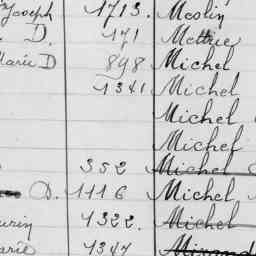 Joseph 1713. Meslin
D. 171 Mettrie
Marie D 898 Michel
1341 Michel
Michel
Michel
352 Michel
D. 1116 Michel,
1322. Michel
1347